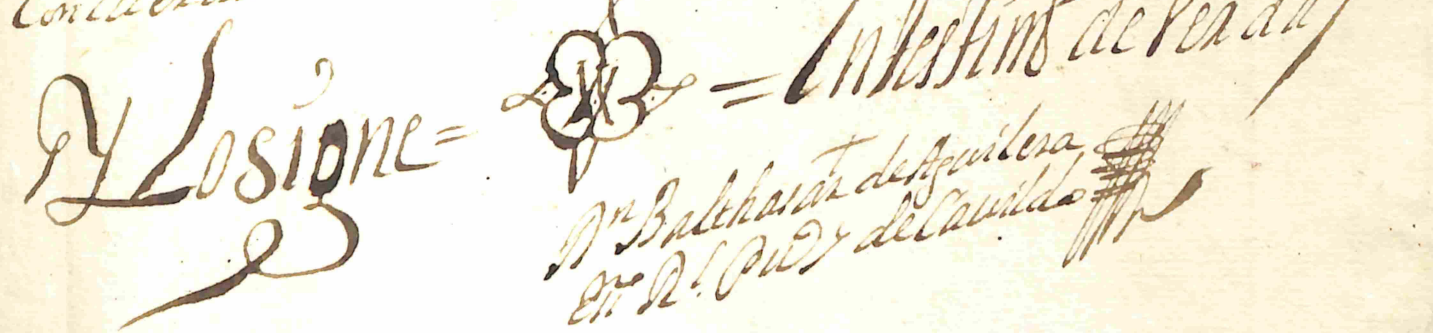 Y Lo signe = = En testimº de Verdad
Dn Balthasar de Aguilera
Rl Puco y de Cavildo